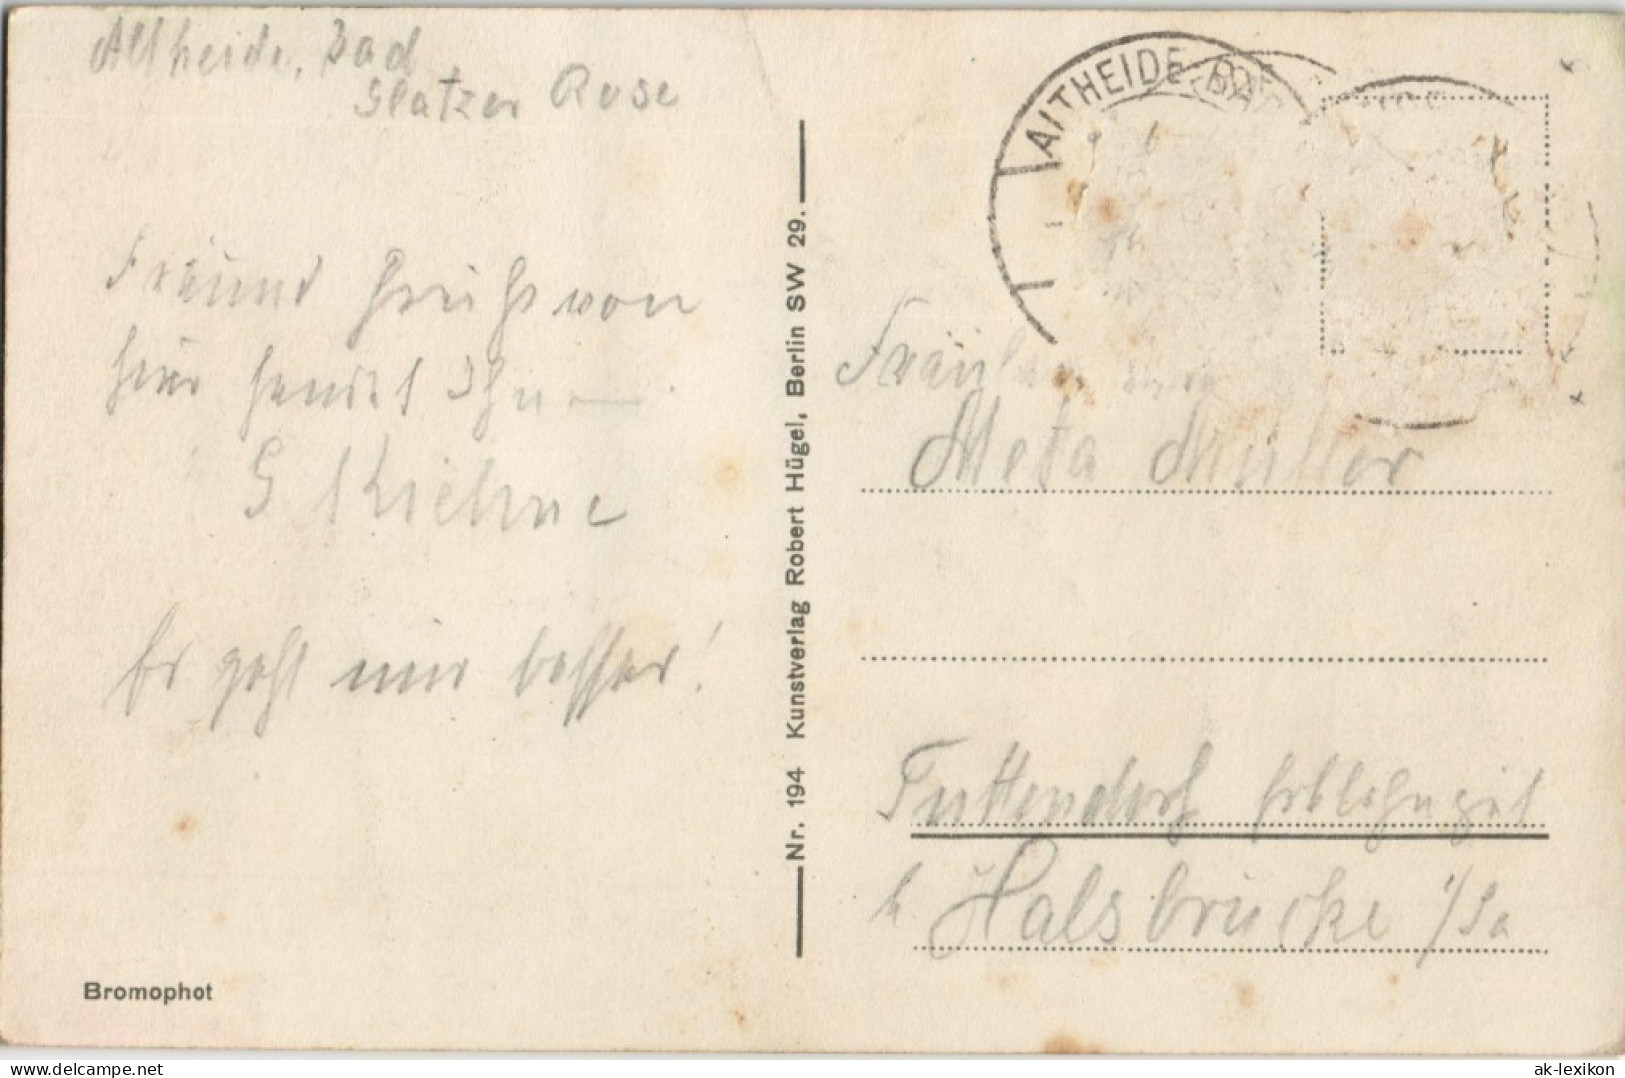 Altheide, Bad
Glatzer Rose
Freundl Grüße von
hier sendet Ihn
G Kiehne
Es geht mir besser!
Bromophot
Nr. 194 Kunstverlag Robert Hügel, Berlin SW 29.
ALTHEIDE-BAD
Fräulein
Meta Müller
Tuttendorf Erblehngut
b Halsbrücke i/Sa
www.delcampe.net
ak-lexikon